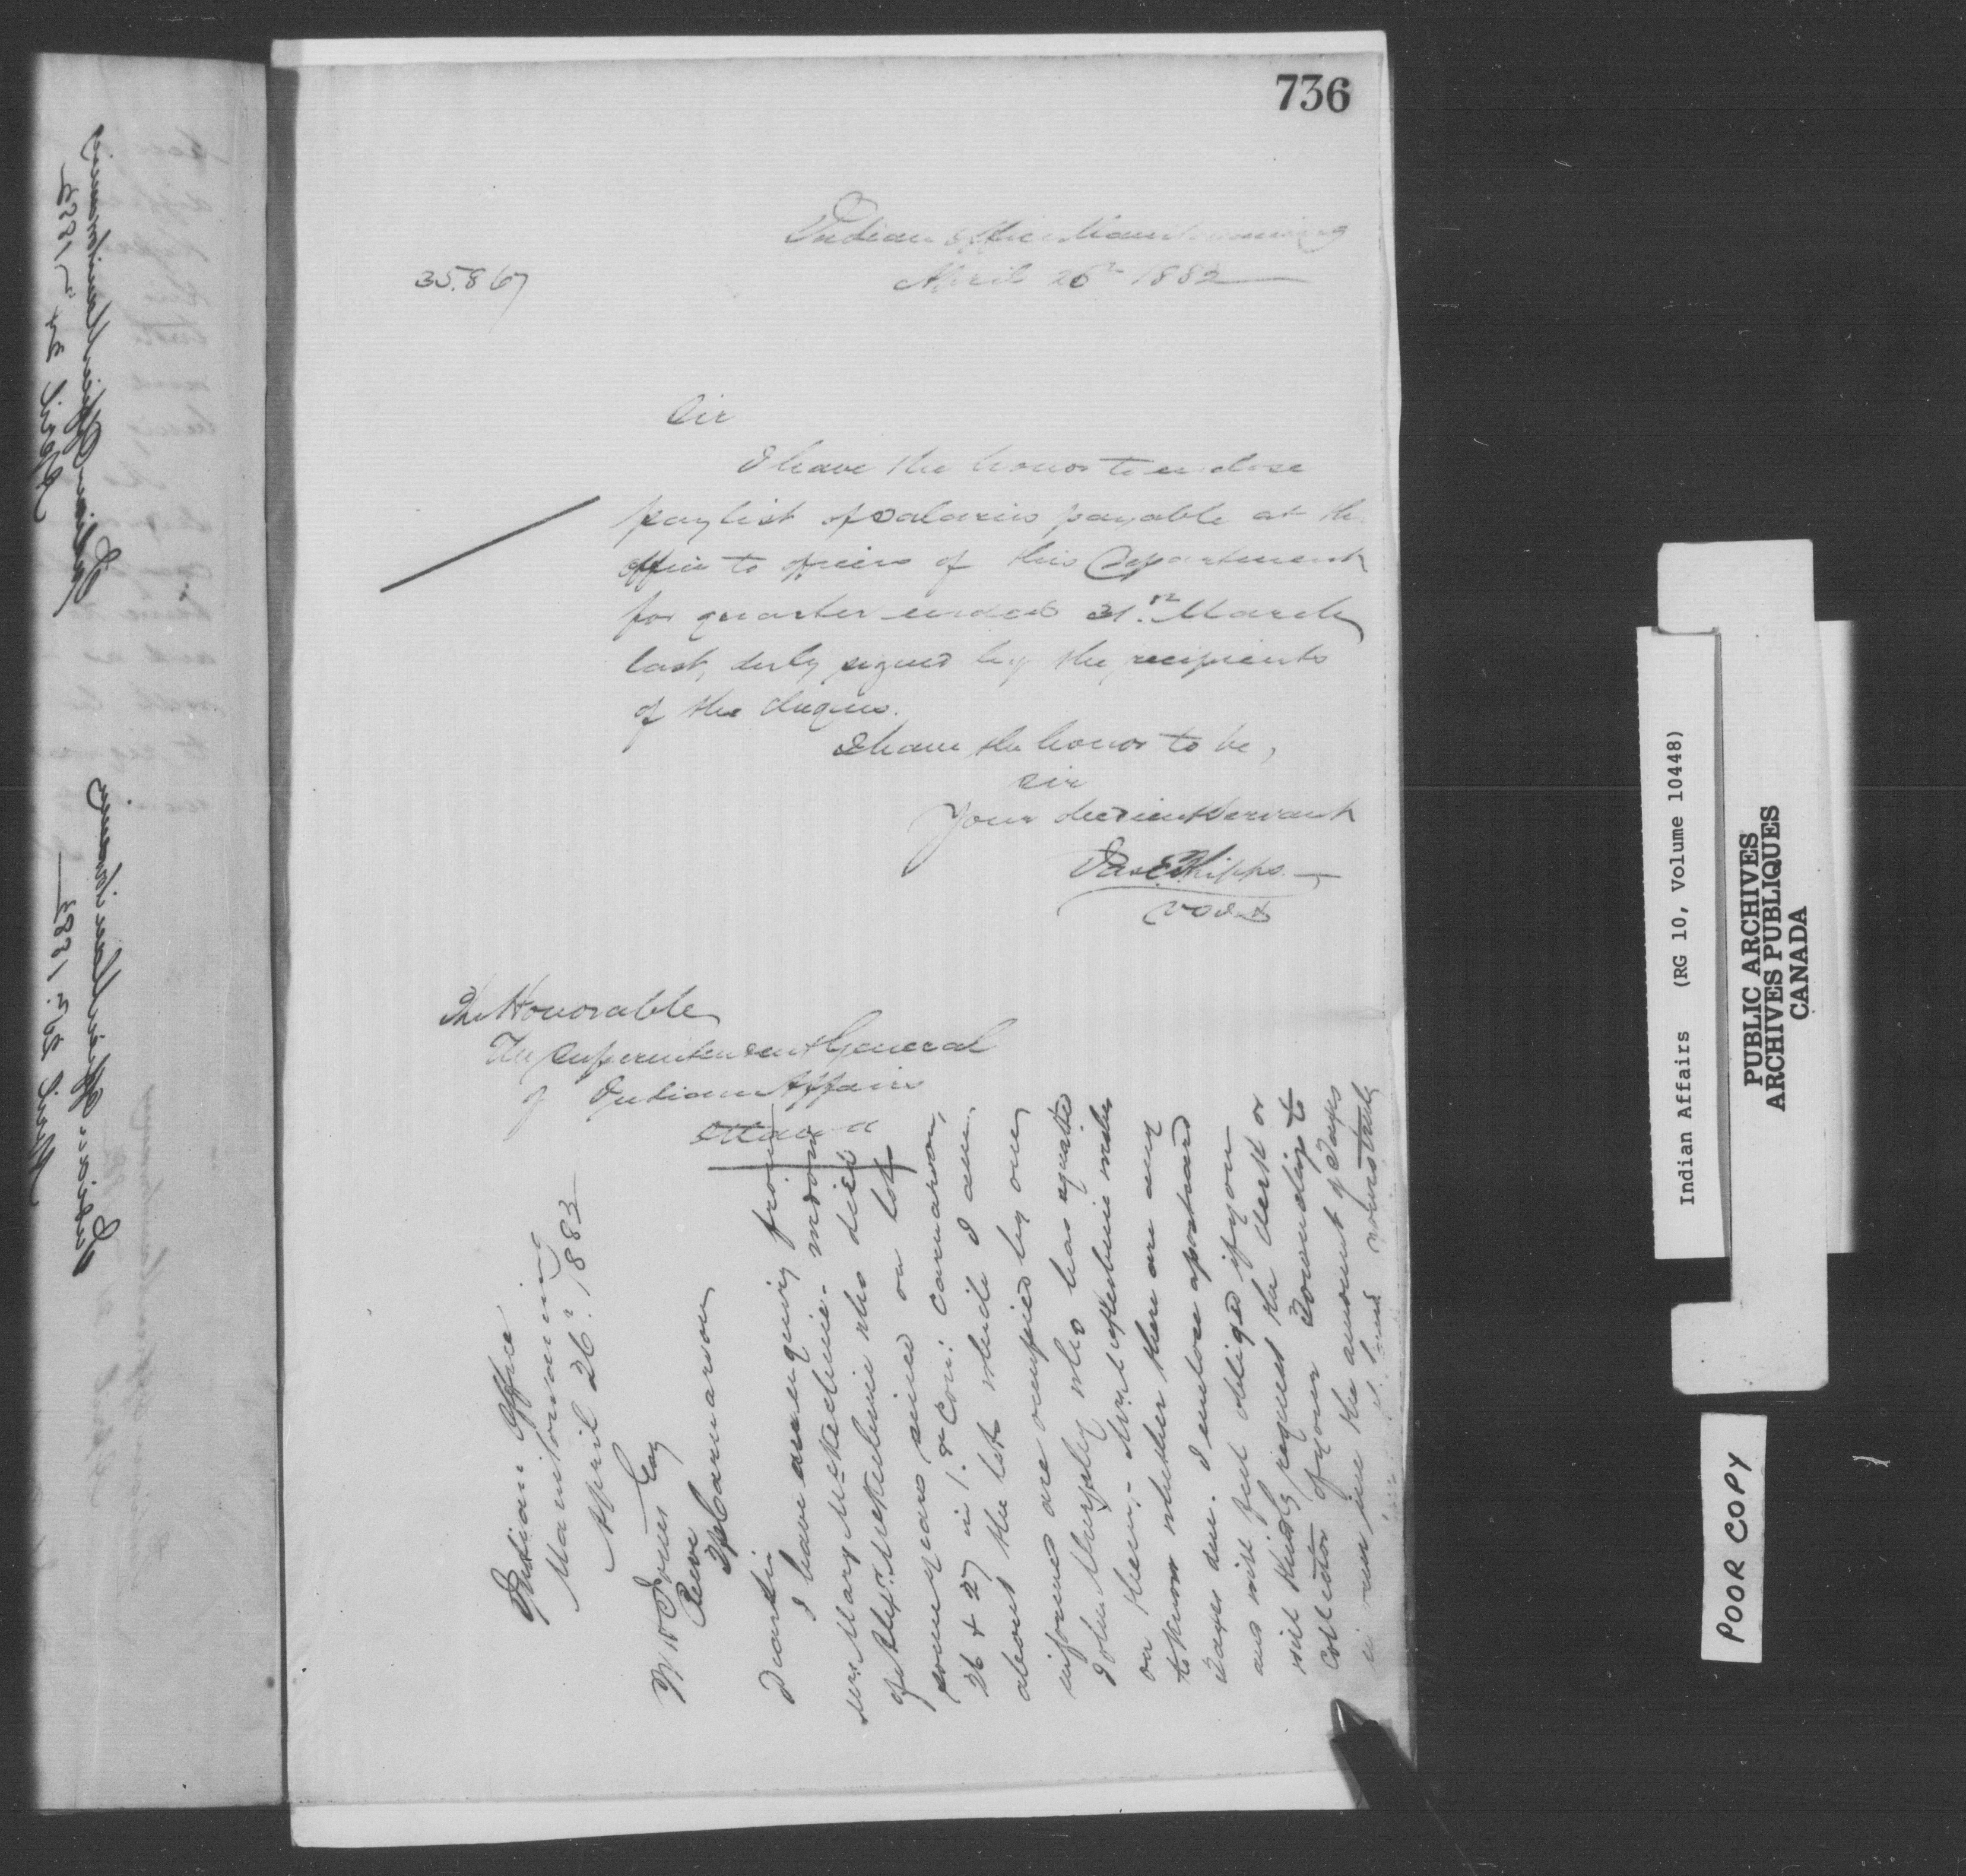 736
Indian Office Manitowaning
April 26th 1883
35.867
Sir
I have the honor to enclose
paylist of salaries payable at the
office to officers of this Department
for quarter ended 31.st March
last, duly signed by the recipients
of the cheques.
I have the honor to be,
Sir
Your obedient Servant
Jas C Phipps
V.S.I.A
The Honorable
The Superintendent General
of Indian Affairs
Ottawa
Indian Office
Manitowaning
April 26th. 1883
W B Jones Esq
Reeve
Tp Carnarvon
Dear Sir
I have an enquiry from
Mrs Mary McKechnie. widow
of Alexr. McKechnie who died
some years since on lots
26 & 27 in 1.st Con: Carnarvon,
about the lots which I am
informed are occupied by one
John Murphy who has squatted
on them.
to know whether there are any
Taxes due. I enclose a postcard
and will feel obliged if you
will kindly request the Clerk or
Collector of your Township to
the amount of Taxes
yours truly
Indian Affairs (RG 10, Volume 10448)
PUBLIC ARCHIVES
ARCHIVES PUBLIQUES
CANADA
POOR COPY